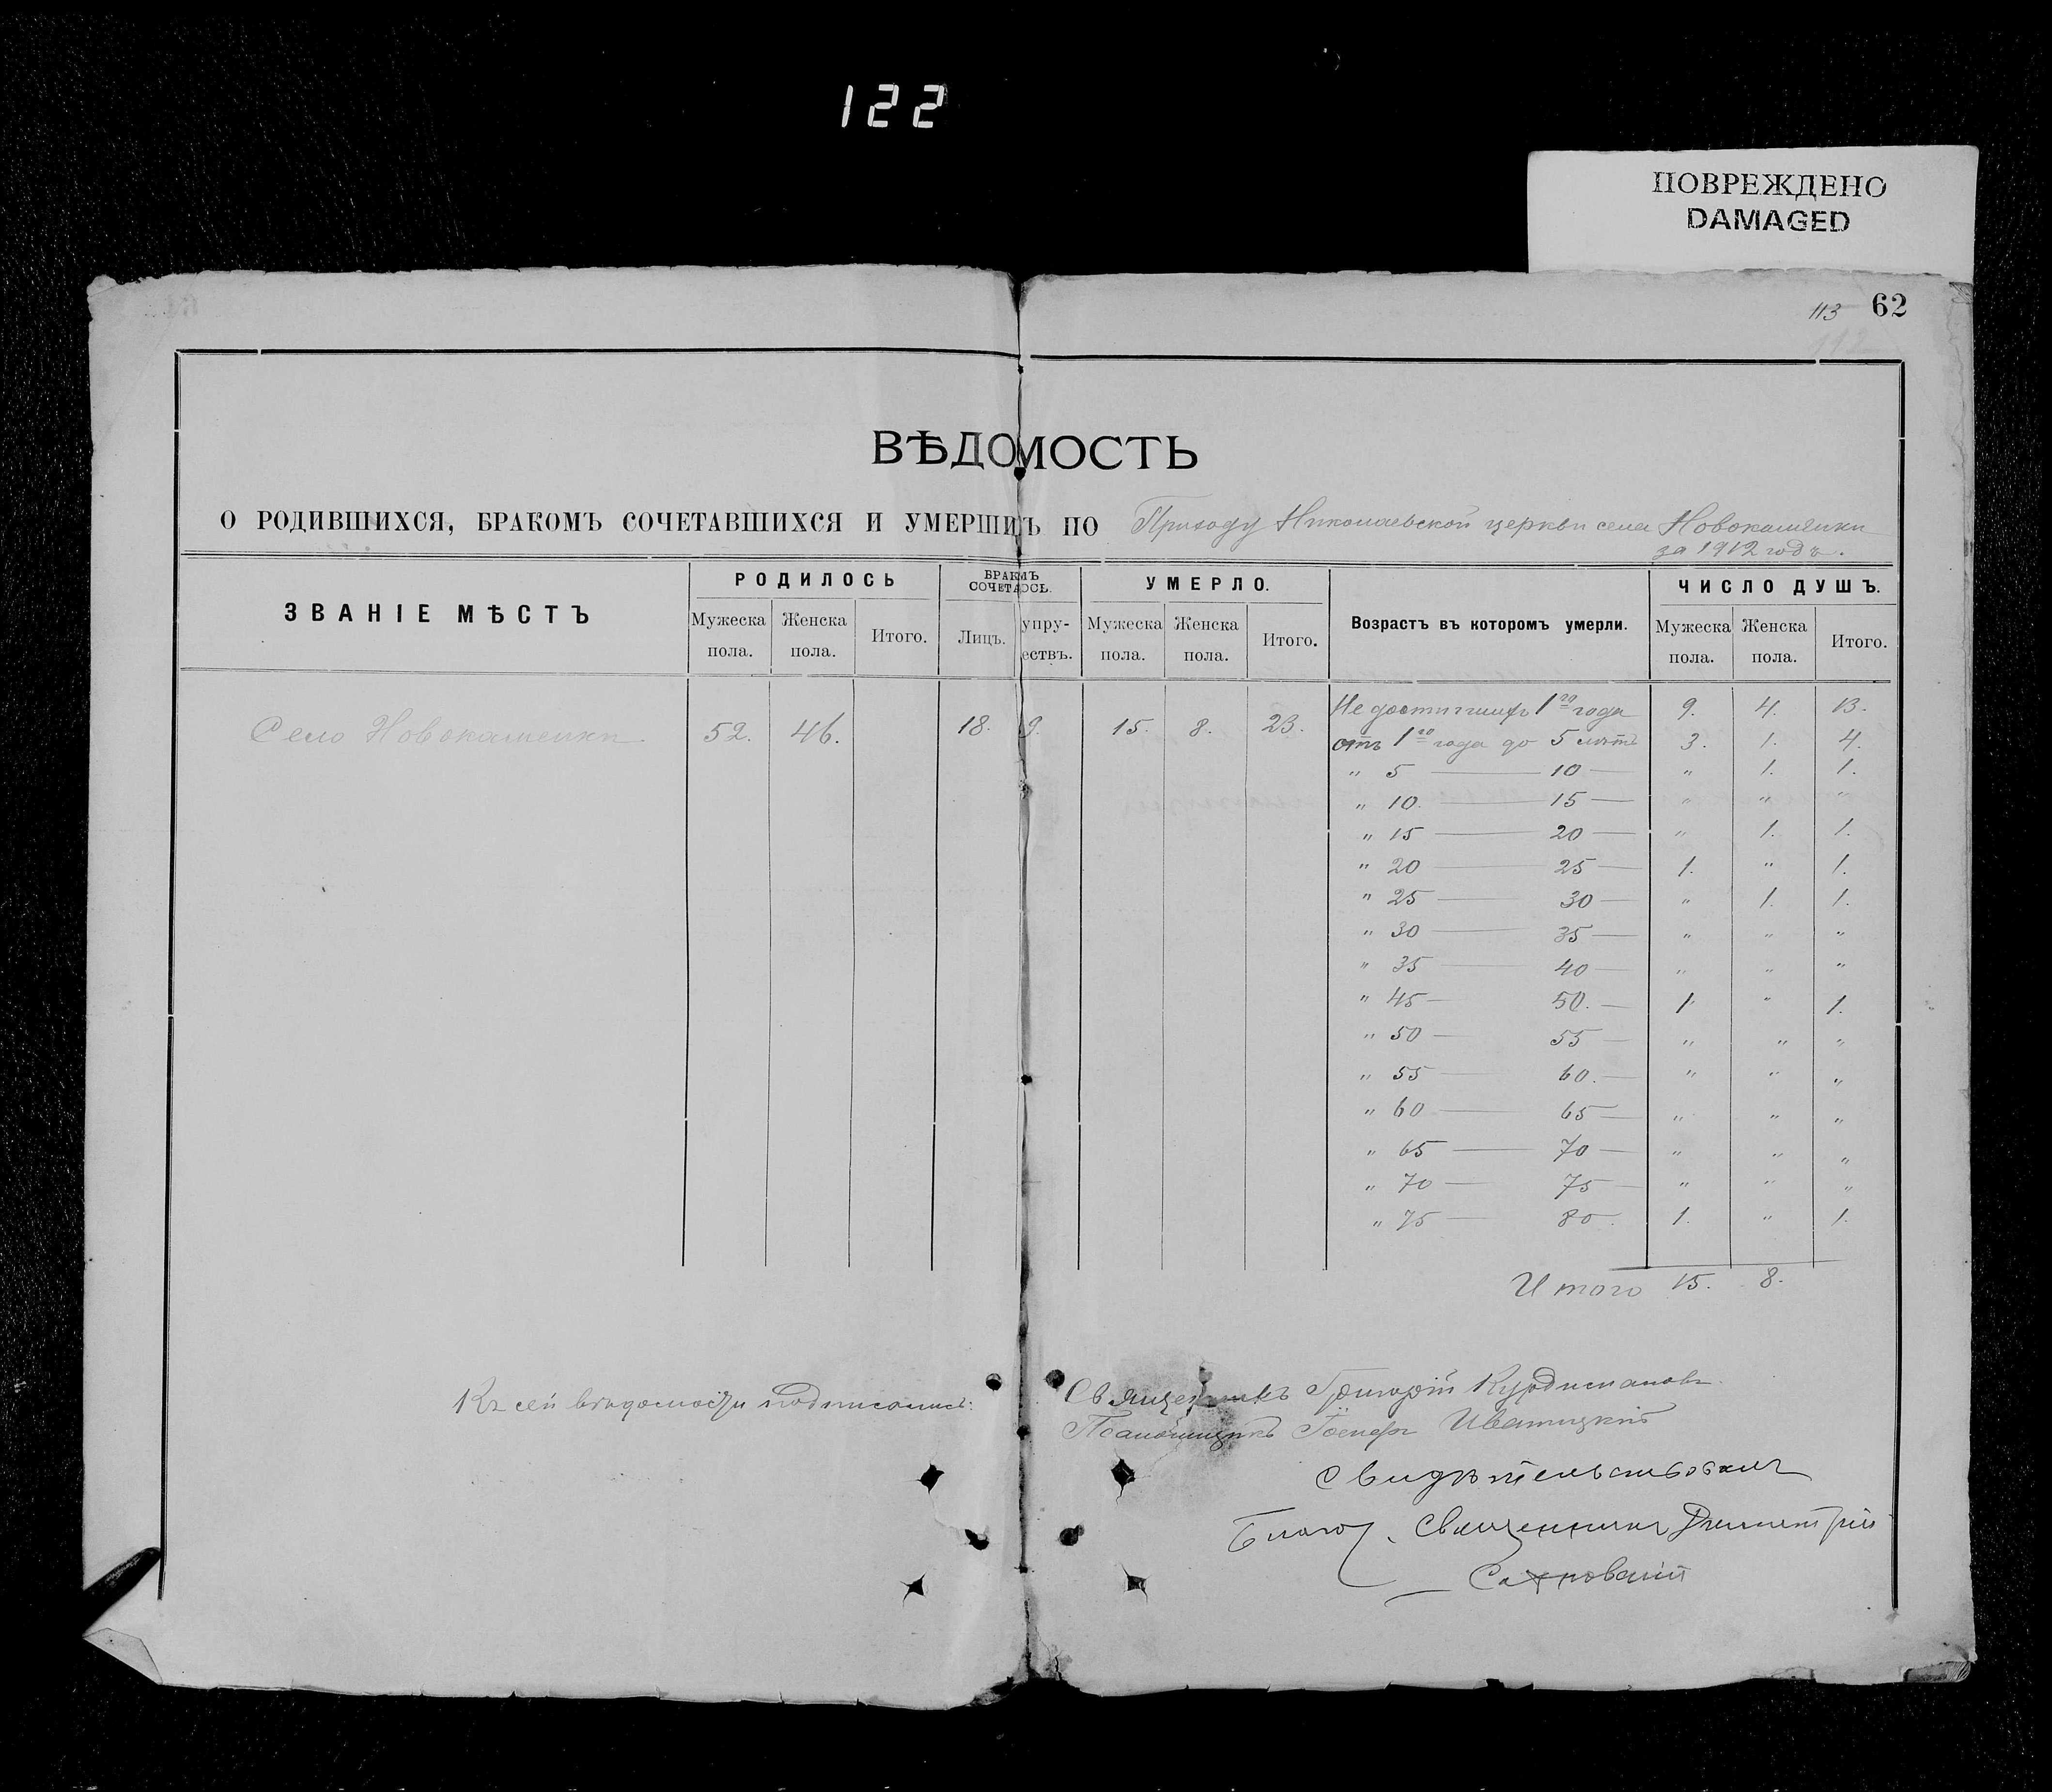 122
ПОВРЕЖДЕНО
DAMAGED
113 62
ВѢДОМОСТЬ
О РОДИВШИХСЯ, БРАКОМЪ СОЧЕТАВШИХСЯ И УМЕРШИХЪ ПО Приходу Николаевской церкви села Новокаменки
за 1912 годъ.
ЗВАНІЕ МѢСТЪ
РОДИЛОСЬ
Мужеска пола.
Женска пола.
Итого.
БРАКМЪ СОЧЕТАОСЬ.
Лицъ.
упру-ествъ.
УМЕРЛО.
Мужеска пола.
Женска пола.
Итого.
Возрастъ въ которомъ умерли.
ЧИСЛО ДУШЪ.
Мужеска пола.
Женска пола.
Итого.
Село Новокаменки 52. 46. 18. 9. 15. 8. 23.
Не достигшихъ 1го года 9. 4. 13.
отъ 1го года до 5 лѣтъ 3. 1. 4.
" 5 — 10 — " 1. 1.
" 10. — 15 — " " "
" 15 — 20 — " 1. 1.
" 20 — 25 — 1. " 1.
" 25 — 30 — " 1. 1.
" 30 — 35 — " " "
" 35 — 40 — " " "
" 45 — 50. — 1. " 1.
" 50 — 55 — " " "
" 55 — 60. — " " "
" 60 — 65 — " " "
" 65 — 70 — " " "
" 70 — 75 — " " "
" 75 — 80. 1. " 1.
Итого 15. 8.
Къ сей вѣдомости подписались:
Священникъ Григорій
Псаломщикъ Іосифъ
Свидѣтельствовалъ
Благоч. Священникъ Димитрій
Сахновскій